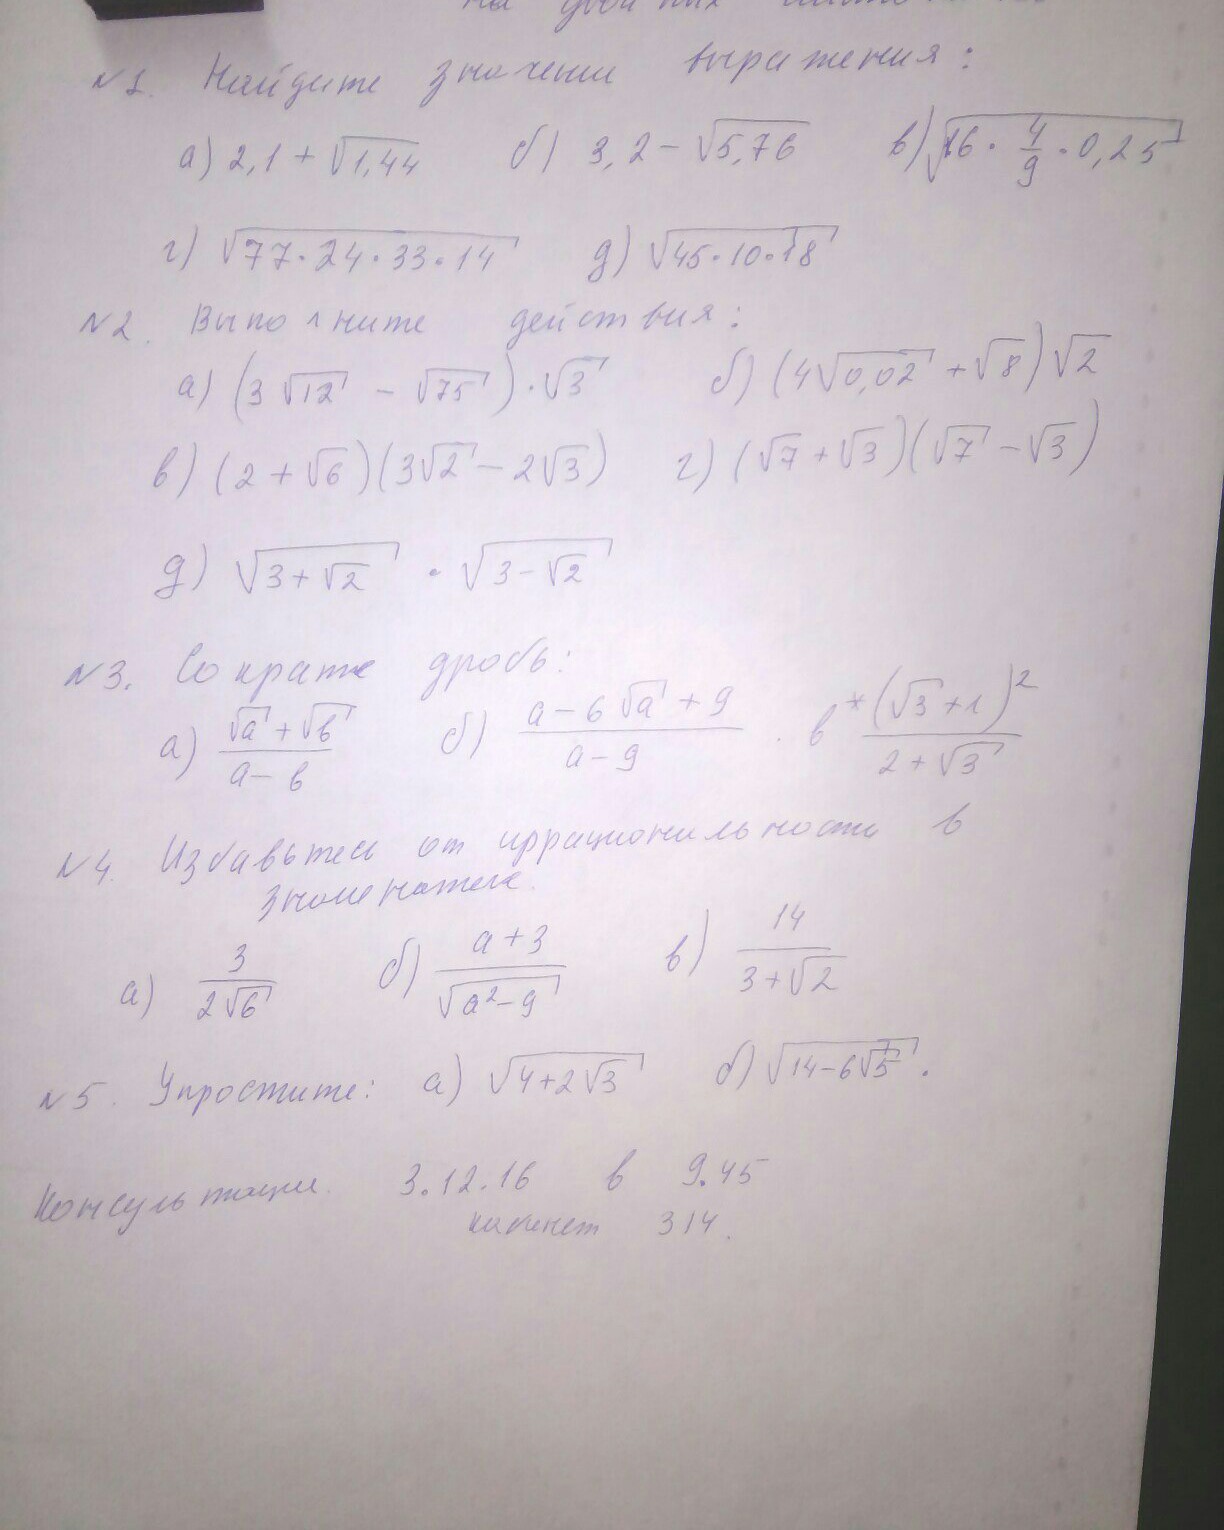 на
№1. Найдите значения выражения:
а) 2,1 + √1,44 б) 3,2 − √5,76 в) √(16 · 4/9 · 0,25)
г) √(77·24·33·14) д) √(45·10·18)
№2. Выполните действия:
а) (3√12 − √75)·√3 б) (4√0,02 + √8)√2
в) (2 + √6)(3√2 − 2√3) г) (√7 + √3)(√7 − √3)
д) √(3+√2) · √(3−√2)
№3. Сократите дробь:
а) (√a + √b)/(a − b) б) (a − 6√a + 9)/(a − 9) . в* (√3+1)²/(2+√3)
№4. Избавьтесь от иррациональности в
знаменателе.
а) 3/(2√6) б) (a+3)/√(a²−9) в) 14/(3+√2)
№5. Упростите: а) √(4+2√3) б) √(14−6√5) .
Консультации. 3.12.16 в 9.45
кабинет 314.